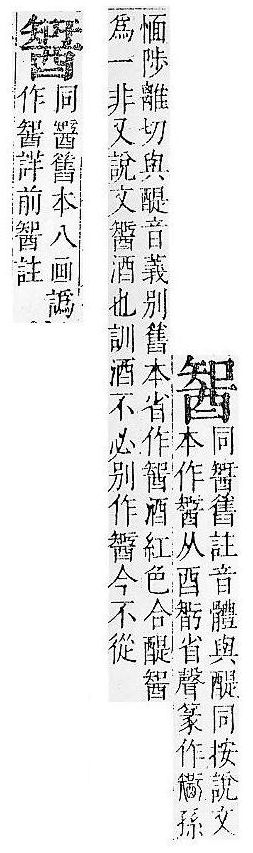 同舊註音體與醍同按說文
本作从酉省聲篆作孫
愐陟離切與醍音義別舊本省作酒紅色合醍
爲一非又說文酒也訓酒不必別作今不從
同舊本八画譌
作詳前註